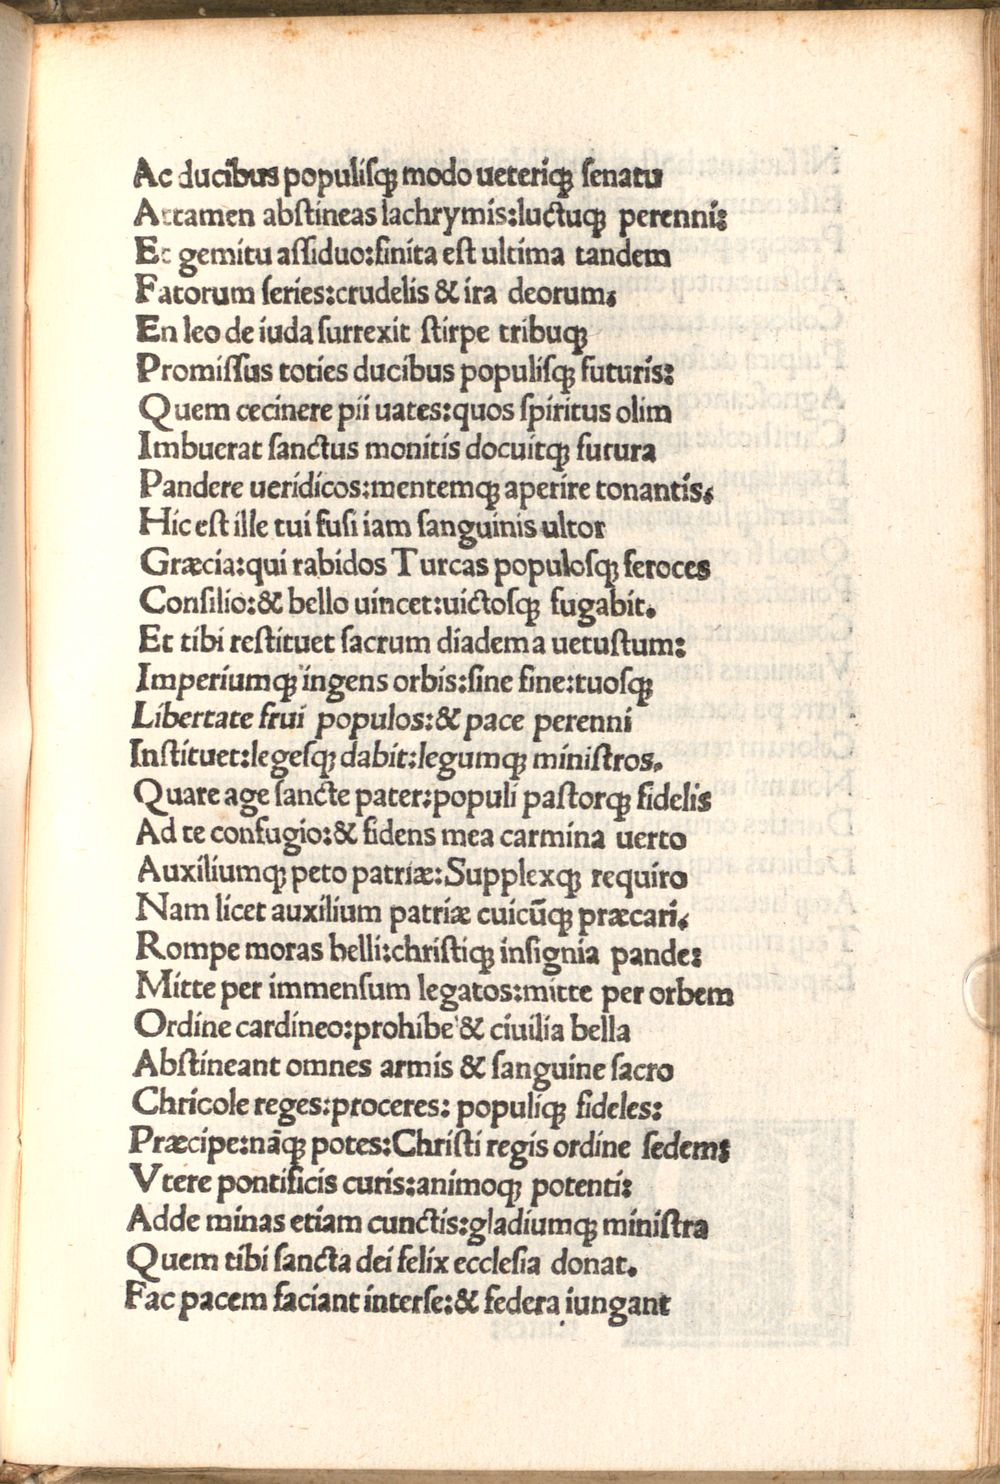 Ac ducibus populiſqꝫ modo ueteriqꝫ ſenatu
Attamen abſtineas lachrymis:luctuqꝫ perenni:
Et gemitu aſſiduo:finita eſt ultima tandem
Fatorum ſeries:crudelis & ira deorum;
En leo de iuda ſurrexit ſtirpe tribuqꝫ
Promiſſus toties ducibus populiſqꝫ futuris:
Quem cecinere pii uates:quos ſpiritus olim
Imbuerat ſanctus monitis docuitqꝫ futura
Pandere ueridicos:mentemqꝫ aperire tonantis;
Hic eſt ille tui fuſi iam ſanguinis ultor
Græcia:qui rabidos Turcas populoſqꝫ feroces
Conſilio:& bello uincet:uictoſqꝫ fugabit.
Et tibi reſtituet ſacrum diadema uetuſtum:
Imperiumqꝫ ingens orbis:ſine fine:tuoſqꝫ
Libertate frui populos:& pace perenni
Inſtituet:legeſqꝫ dabit:legumqꝫ miniſtros.
Quare age ſancte pater:populi paſtorqꝫ fidelis
Ad te confugio:& fidens mea carmina uerto
Auxiliumqꝫ peto patriæ:Supplexqꝫ requiro
Nam licet auxilium patriæ cuicūqꝫ præcari;
Rompe moras belli:chriſtiqꝫ inſignia pande:
Mitte per immenſum legatos:mitte per orbem
Ordine cardineo:prohibe & ciuilia bella
Abſtineant omnes armis & ſanguine ſacro
Chricole reges:proceres: populiqꝫ fideles:
Præcipe:nāqꝫ potes:Chriſti regis ordine ſedem;
Vtere pontificis curis:animoqꝫ potenti:
Adde minas etiam cunctis:gladiumqꝫ miniſtra
Quem tibi ſancta dei felix eccleſia donat.
Fac pacem faciant interſe:& federa iungant